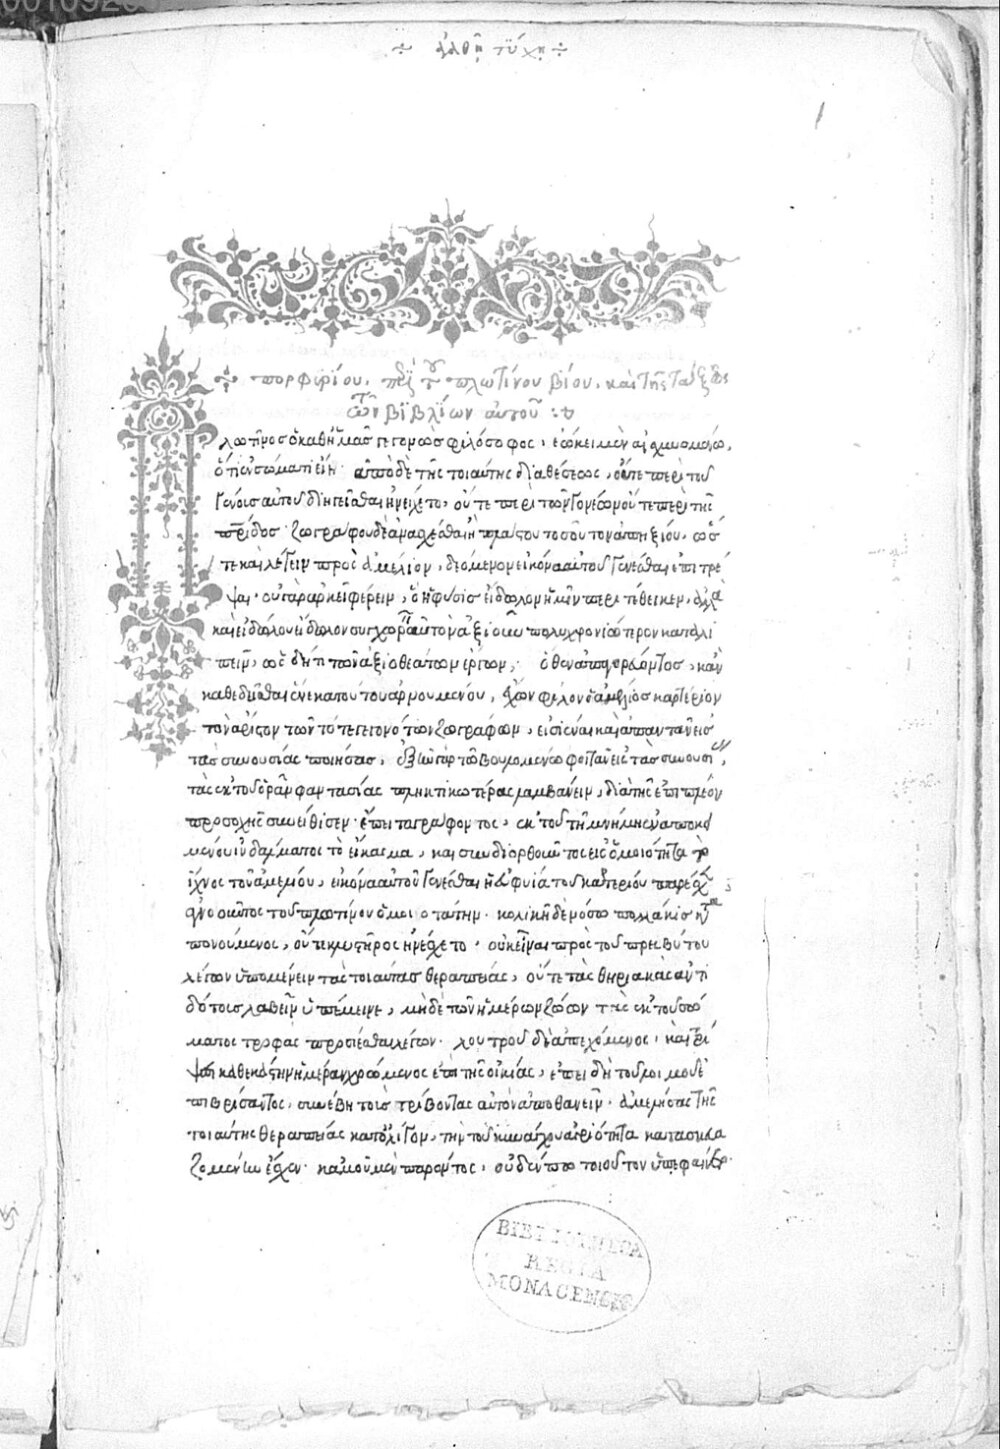 ÷ ἀγαθῇ τύχῃ ÷
1
÷ πορφυρίου, περὶ τοῦ πλωτίνου βίου, καὶ τῆς τάξεως
τῶν βιβλίων αὐτοῦ :
Πλωτῖνος ὁ καθ' ἡμᾶς γεγονὼς φιλόσοφος, ἐῴκει μὲν αἰσχυνομένῳ,
ὅτι ἐν σώματι εἴη· ἀπὸ δὲ τῆς τοιαύτης διαθέσεως, οὔτε περὶ τοῦ
γένους αὐτοῦ διηγεῖσθαι ἠνείχετο, οὔτε περὶ τῶν γονέων οὔτε περὶ τῆς
πατρίδος· ζωγράφου δὲ ἀνασχέσθαι ἢ πλάστου τοσοῦτον ἀπηξίου, ὥσ
τε καὶ λέγειν πρὸς ἀμέλιον, δεόμενον εἰκόνα αὐτοῦ γενέσθαι ἐπιτρέ
ψαι· οὐ γὰρ ἀρκεῖ φέρειν, ὃ ἡ φύσις εἴδωλον ἡμῖν περιτέθεικεν, ἀλλὰ
καὶ εἰδώλου εἴδωλον συγχωρεῖν αὐτὸν ἀξιοῦν πολυχρονιώτερον καταλι
πεῖν, ὡς δή τι τῶν ἀξιοθεάτων ἔργων; ὅθεν ἀπαγορεύοντος, καὶ
καθεδεῖσθαι ἕνεκα τούτου ἀρνουμένου, ἔχων φίλον ὁ ἀμέλιος καρτέριον
τὸν ἄριστον τῶν τότε γεγονότων ζωγράφων, εἰσιέναι καὶ ἀπαντᾶν εἰς
τὰς συνουσίας ποιήσας, ἐξῆν γὰρ τῷ βουλομένῳ φοιτᾶν εἰς τὰς συνουσίας,
τὰς ἐκ τοῦ ὁρᾶν φαντασίας πληκτικωτέρας λαμβάνειν, διὰ τῆς ἐπιπλέον
προσοχῆς συνείθισεν· ἔπειτα γράφοντος, ἐκ τοῦ τῇ μνήμῃ ἐναποκει
μένου ἰνδάλματος τὸ εἴκασμα, καὶ συνδιορθοῦντος εἰς ὁμοιότητα τὸ
ἴχνος τοῦ ἀμελίου, εἰκόνα αὐτοῦ γενέσθαι ἡ εὐφυΐα τοῦ καρτερίου παρέσχεν
ἀγνοοῦντος τοῦ πλωτίνου ὁμοιοτάτην· κοιλιακῇ δὲ νόσῳ πολλάκις κατα
πονούμενος, οὔτε κλυστῆρος ἠνέσχετο, οὐκ εἶναι πρὸς τοῦ πρεσβύτου
λέγων ὑπομένειν τὰς τοιαύτας θεραπείας, οὔτε τὰς θηριακὰς ἀντι
δότους λαβεῖν ὑπέμεινε, μὴδὲ τῶν ἡμέρων ζώων τὰς ἐκ τοῦ σώ
ματος τροφὰς προσίεσθαι λέγων· λουτροῦ δὲ ἀπεχόμενος, καὶ τρί
ψεσι καθ' ἑκάστην ἡμέραν χρώμενος ἐπὶ τῆς οἰκίας, ἐπειδὴ τοῦ λοιμοῦ ἐ
πιβρίσαντος, συνέβη τοὺς τρίβοντας αὐτὸν ἀποθανεῖν· ἀμελήσας τῆς
τοιαύτης θεραπείας κατ' ὀλίγον, τὴν τοῦ κυνάγχου ἀγριότητα κατασκευα
ζομένην ἔσχεν· κἀμοῦ μὲν παρόντος, οὐδέν πω τοιοῦτον ὑπεφαίνετο·
BIBLIOTHECA
REGIA
MONACENSIS